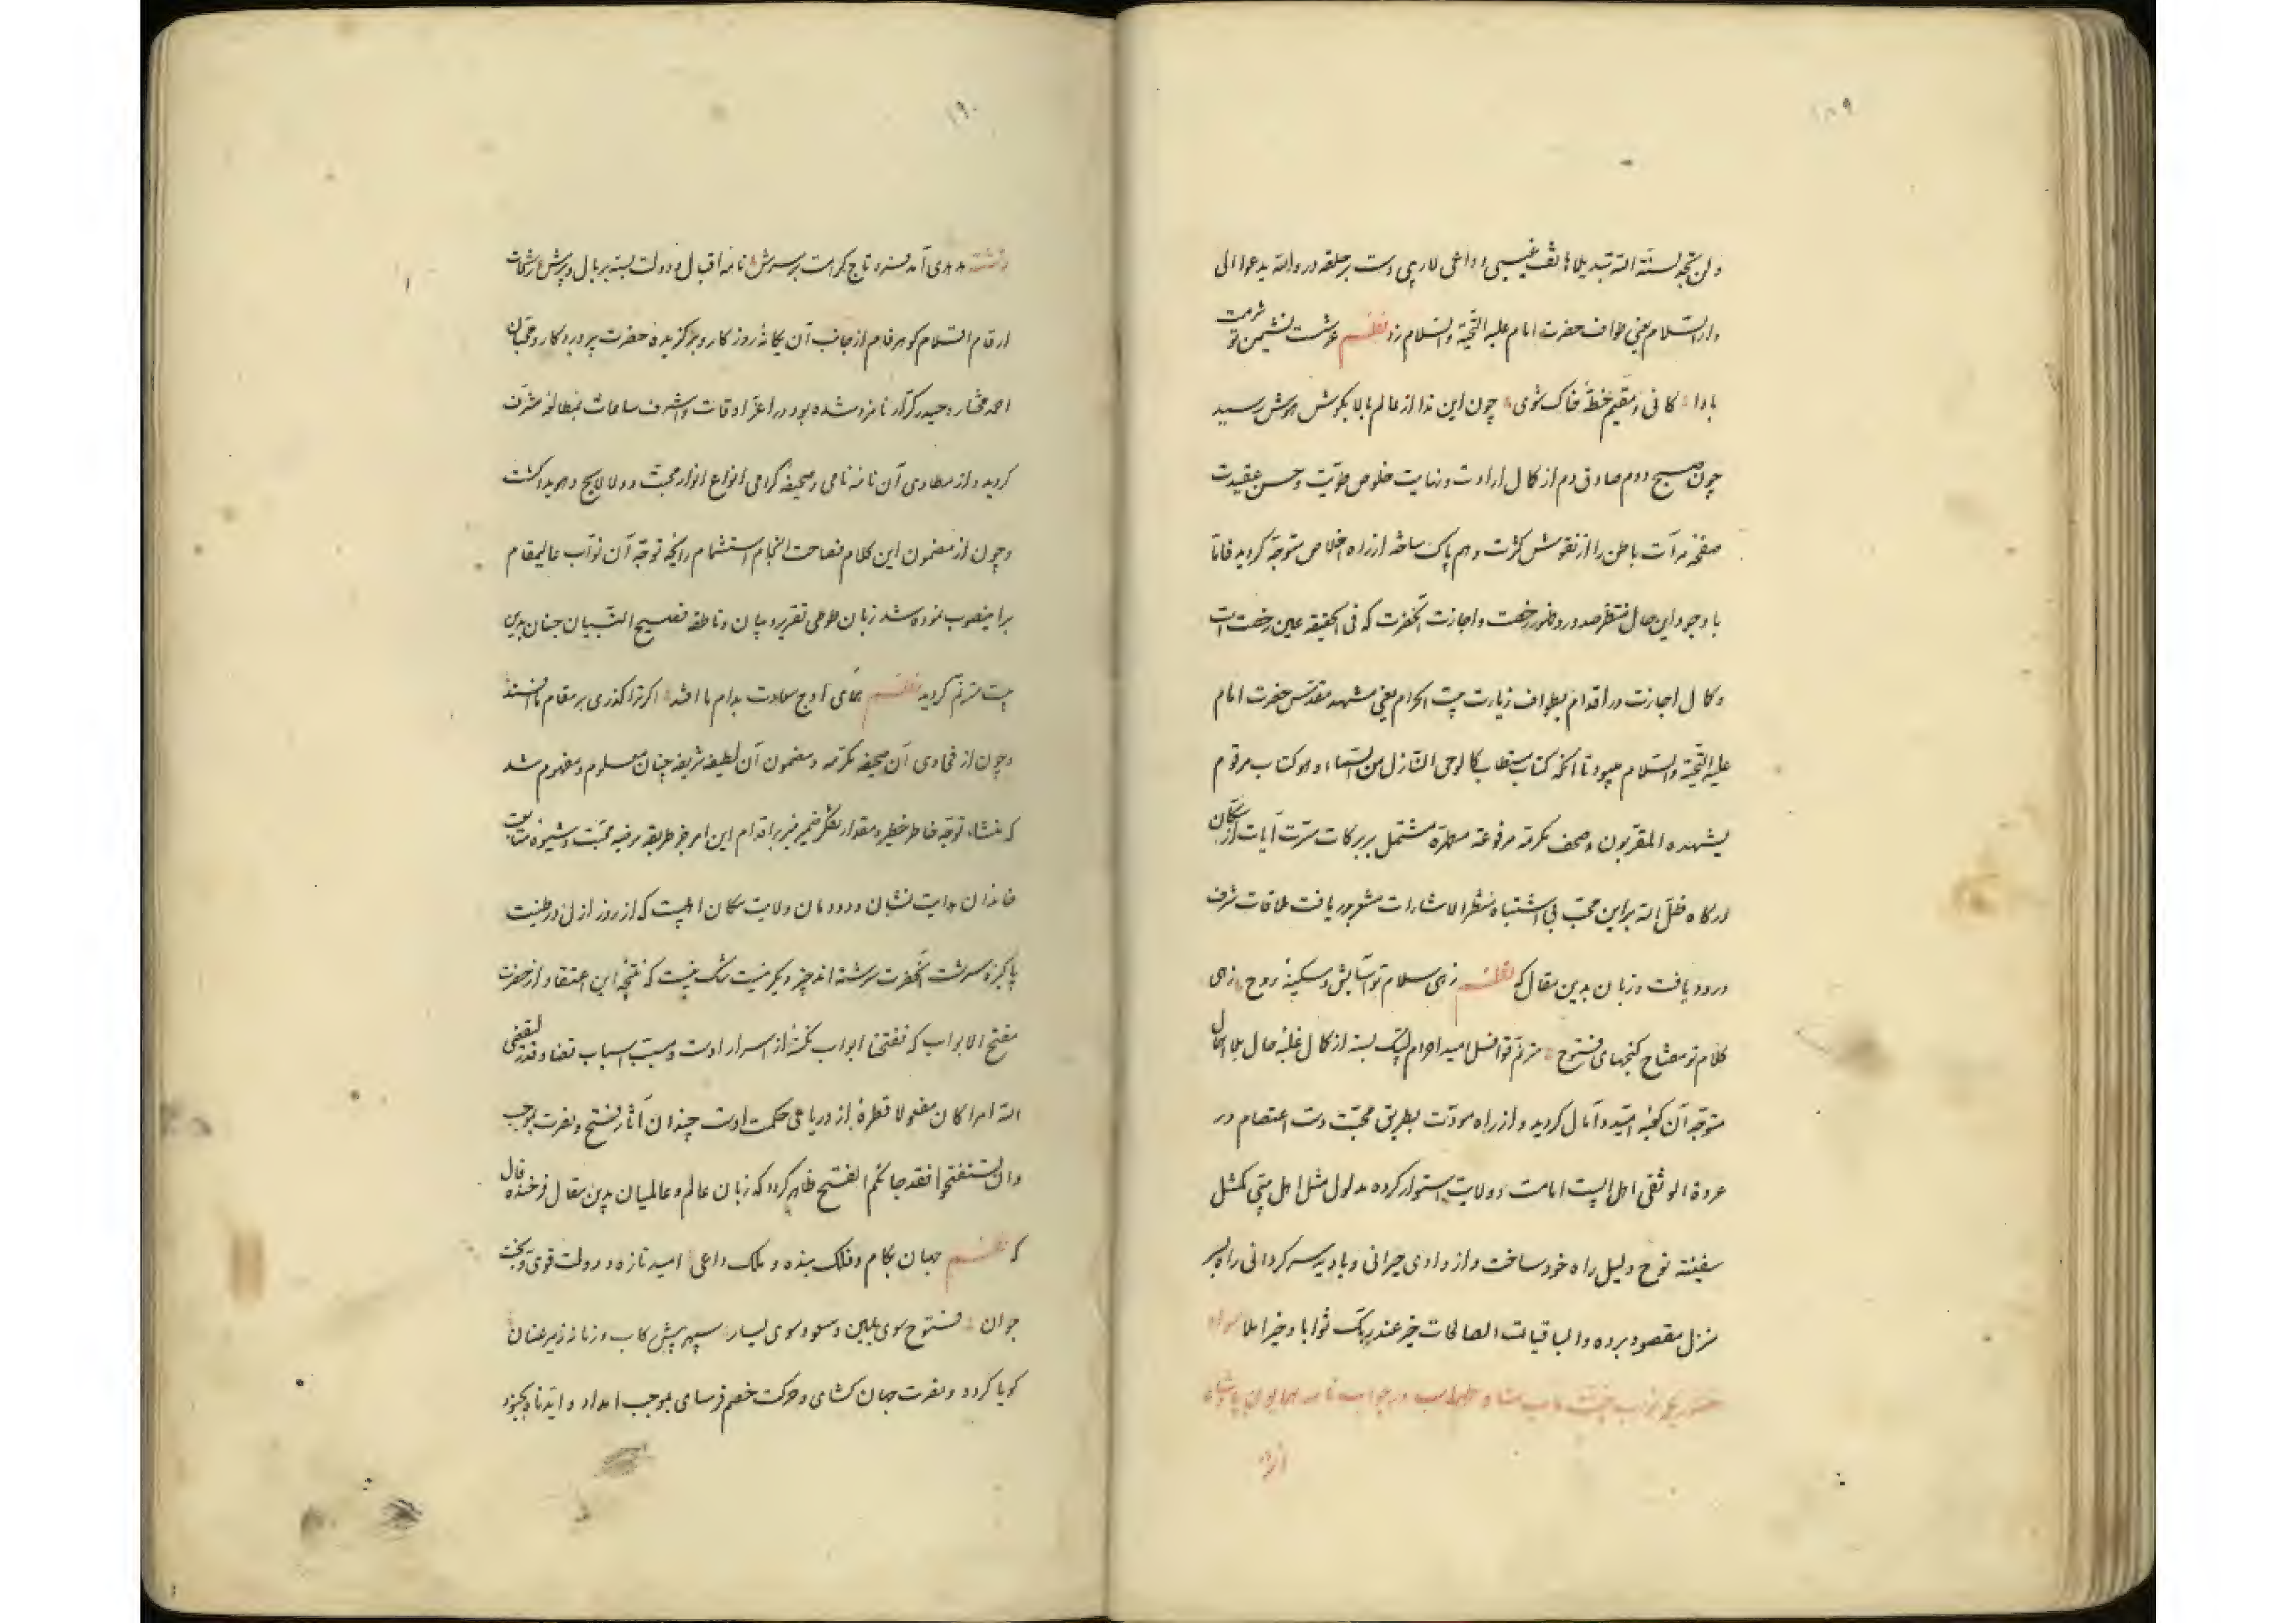 ۱۸۹
ولن تجد لسنة الله تبدیلا هاتف غیبی و داعی لاریبی دست بر حلقه در والله یدعوا الی
دار السلام یعنی طواف حضرت امام علیه التحیة والسلام زد نظم عرشست نشیمن تو شرمت
بادا کائی و مقیم خطه خاک شوی چون این ندا از عالم بالا بگوش هوش رسید
چون صبح دوم صادق دم از کمال ارادت و نهایت خلوص طویت و حسن عقیدت
صفحه مرآت باطن را از نقوش کثرت و هم پاک ساخته از راه اخلاص متوجه گردید فاما
با وجود این حال منتظر صدور و ظهور رخصت و اجازت آنحضرت که فی الحقیقه عین رخصت است
و کمال اجازت در اقدام بطواف زیارت بیت الحرام یعنی مشهد مقدس حضرت امام
علیه التحیة والسلام میبود تا آنکه کتاب مستطاب کالوحی النازل من السماء و هو کتاب مرقوم
یشهده المقربون و صحف مکرمة مرفوعة مطهرة مشتمل بر برکات مسرت آیات از سکان
درگاه ظل اله براین محب بی اشتباه منظر الاشارات مشعر بدریافت ملاقات شرف
ورود یافت و زبان بدین مقال که نظم زهی سلام تو آسایش و سکینه روح زهی
کلام تو مفتاح گنجهای فتوح مترنم قوافل امید احرام لبیک بسته از کمال غلبه حال بلا اهمال
متوجه آن کعبه امید و آمال گردید و از راه مودت بطریق محبت دست اعتصام در
عروة الوثقی اهل البیت امامت و ولایت استوار کرده مدلول مثل اهل بیتی کمثل
سفینة نوح دلیل راه خود ساخت و از وادی حیرانی و بادیه سرگردانی راه بسر
منزل مقصود برده والباقیات الصالحات خیر عند ربک ثوابا و خیر املا سواد
نواب جنت مآب شاه طهماسب در جواب نامه همایون پادشاه
۱۹۰
هدهدی آمد فرو تاج کرامت بر سرش نامه اقبال و دولت بسته بر بال و پرش رشحات
ارقام السلام گوهر فام از جانب آن یگانه روزگار و برگزیده حضرت پروردگار و محبان
احمد مختار و حیدر کرار نامزد شده بود در اعز اوقات و اشرف ساعات بمطالعه مشرف
گردید و از مطاوی آن نامه نامی و صحیفه گرامی انواع انوار محبت و ولا لایح و هویدا گشت
و چون از مضمون این کلام فصاحت انجام استشمام رایحه توجه آن نواب عالیمقام
بر اینصوب نموده شد زبان طوطی تقریر و بیان و ناطقه فصیح التبیان جنان بدین
بیت مترنم گردید نظم همای اوج سعادت بدام ما افتد اگر ترا گذری بر مقام ما افتد
و چون از فحاوی آن صحیفه مکرمه و مضمون آن لطیفه شریفه چنان معلوم و مفهوم شد
که منشاء توجه خاطر خطیر و مقدار تفکر ضمیر منیر بر اقدام این امر خیر طریقه مرضیه محبت و شیوه متابعت
خاندان هدایت نشان و دودمان ولایت مکان اهلبیت که از روز ازل در طینت
پاکیزه سرشت آنحضرت سرشته اند چیز دیگر نیست شک نیست که نتیجه این اعتقاد از حضرت
مفتح الابواب که ففتحنا ابواب نکته از اسرار اوست و مسبب اسباب قضا و قدر لیقضی
الله امرا کان مفعولا قطره از دریا های حکمت اوست چندان آثار فتح و نصرت بموجب
وان تستفتحوا فقد جاءکم الفتح ظاهر گردد که زبان عالم و عالمیان بدین مقال فرخنده فال
که نظم جهان بکام و فلک بنده و ملک داعی امید تازه و دولت قوی و بخت
جوان فتوح سوی یمین و سعود سوی یسار سپهر پیش رکاب و زمانه زیر عنان
گویا گردد و نصرت جهان گشای و حرکت خصم فرسای بموجب امداد و ایدناه بجنود